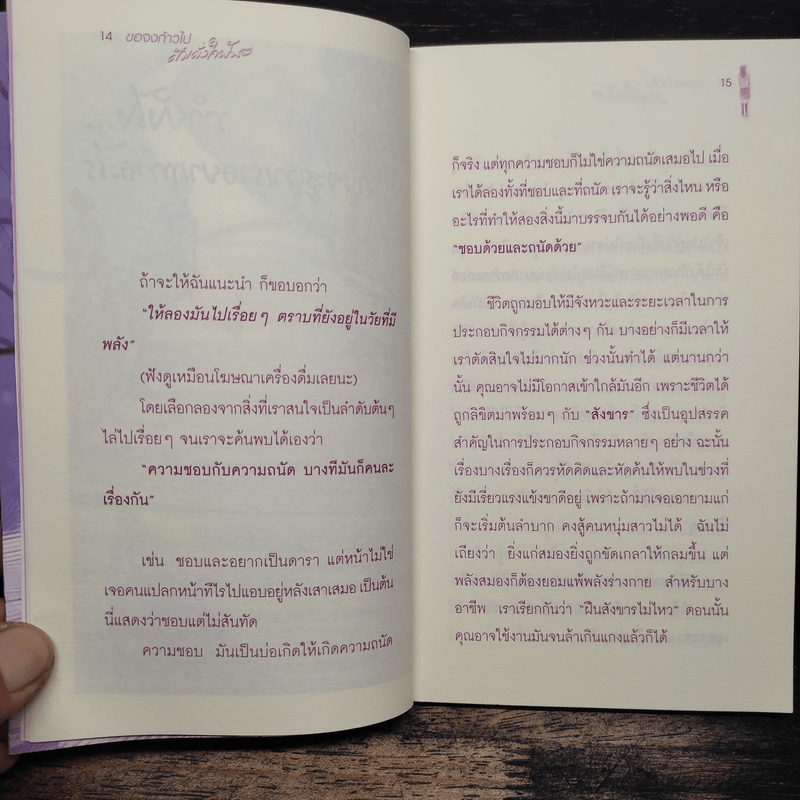 14 ขอจงก้าวไป
ถ้าจะให้ฉันแนะนำ ก็ขอบอกว่า
“ให้ลองมันไปเรื่อยๆ ตราบที่ยังอยู่ในวัยที่มี
พลัง”
(ฟังดูเหมือนโฆษณาเครื่องดื่มเลยนะ)
โดยเลือกลองจากสิ่งที่เราสนใจเป็นลำดับต้นๆ
ไล่ไปเรื่อยๆ จนเราจะค้นพบได้เองว่า
“ความชอบกับความถนัด บางทีมันก็คนละ
เรื่องกัน”
เช่น ชอบและอยากเป็นดารา แต่หน้าไม่ใช่
เจอคนแปลกหน้าทีไรไปแอบอยู่หลังเสาเสมอ เป็นต้น
นี่แสดงว่าชอบแต่ไม่สันทัด
ความชอบ มันเป็นบ่อเกิดให้เกิดความถนัด
15
ก็จริง แต่ทุกความชอบก็ไม่ใช่ความถนัดเสมอไป เมื่อ
เราได้ลองทั้งที่ชอบและที่ถนัด เราจะรู้ว่าสิ่งไหน หรือ
อะไรที่ทำให้สองสิ่งนี้มาบรรจบกันได้อย่างพอดี คือ
“ชอบด้วยและถนัดด้วย”
ชีวิตถูกมอบให้มีจังหวะและระยะเวลาในการ
ประกอบกิจกรรมได้ต่างๆ กัน บางอย่างก็มีเวลาให้
เราตัดสินใจไม่มากนัก ช่วงนั้นทำได้ แต่นานกว่า
นั้น คุณอาจไม่มีโอกาสเข้าใกล้มันอีก เพราะชีวิตได้
ถูกลิขิตมาพร้อมๆ กับ “สังขาร” ซึ่งเป็นอุปสรรค
สำคัญในการประกอบกิจกรรมหลายๆ อย่าง ฉะนั้น
เรื่องบางเรื่องก็ควรหัดคิดและหัดค้นให้พบในช่วงที่
ยังมีเรี่ยวแรงแข้งขาดีอยู่ เพราะถ้ามาเจอเอายามแก่
ก็จะเริ่มต้นลำบาก คงสู้คนหนุ่มสาวไม่ได้ ฉันไม่
เถียงว่า ยิ่งแก่สมองยิ่งถูกขัดเกลาให้กลมขึ้น แต่
พลังสมองก็ต้องยอมแพ้พลังร่างกาย สำหรับบาง
อาชีพ เราเรียกกันว่า “ฝืนสังขารไม่ไหว” ตอนนั้น
คุณอาจใช้งานมันจนล้าเกินแกงแล้วก็ได้